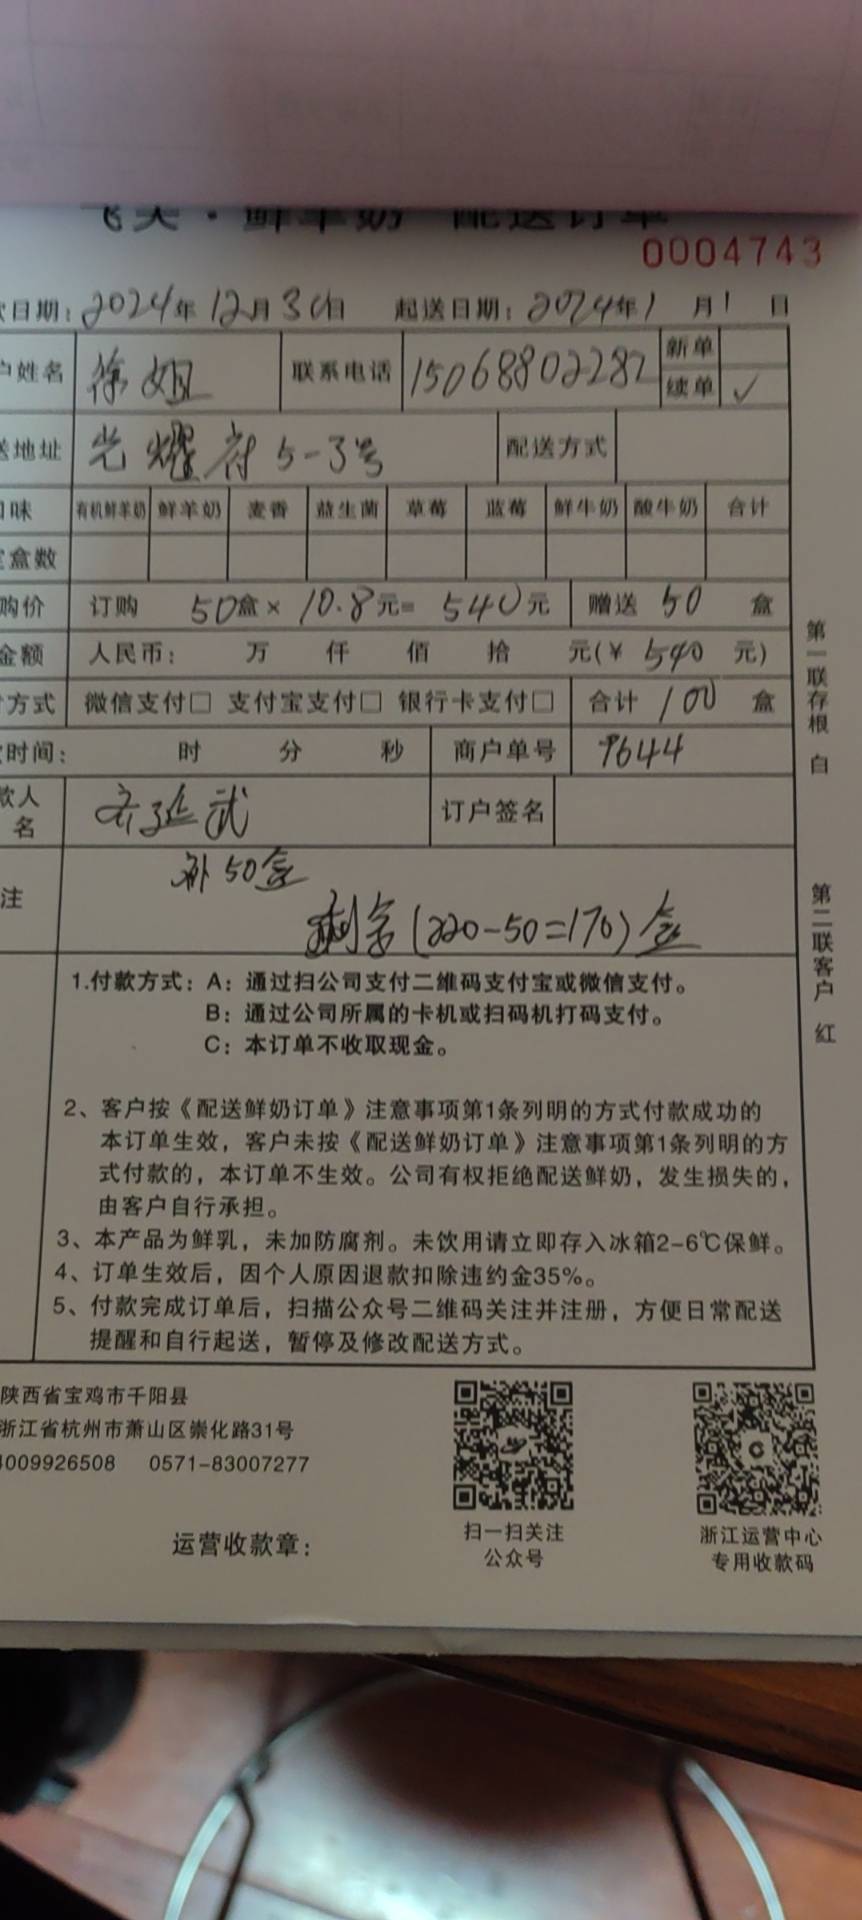 飞天·鲜羊奶 配送订单
0004743
款日期：2024年12月30日 起送日期：2024年1月1日
户姓名 徐姐 联系电话 15068802282 新单
续单 ✓
送地址 光耀府5-3号 配送方式
口味 有机鲜羊奶 鲜羊奶 麦香 益生菌 草莓 蓝莓 鲜牛奶 酸牛奶 合计
定盒数
购价 订购 50盒×10.8元=540元 赠送 50 盒
金额 人民币： 万 仟 佰 拾 元(￥540元)
方式 微信支付□ 支付宝支付□ 银行卡支付□ 合计 100 盒
时间： 时 分 秒 商户单号 9644
款人
名 齐延武 订户签名
补50盒
注 剩余(220-50=170)盒
第一联存根 白
第二联客户 红
1.付款方式：A：通过扫公司支付二维码支付宝或微信支付。
B：通过公司所属的卡机或扫码机打码支付。
C：本订单不收取现金。
2、客户按《配送鲜奶订单》注意事项第1条列明的方式付款成功的
本订单生效，客户未按《配送鲜奶订单》注意事项第1条列明的方
式付款的，本订单不生效。公司有权拒绝配送鲜奶，发生损失的，
由客户自行承担。
3、本产品为鲜乳，未加防腐剂。未饮用请立即存入冰箱2-6℃保鲜。
4、订单生效后，因个人原因退款扣除违约金35%。
5、付款完成订单后，扫描公众号二维码关注并注册，方便日常配送
提醒和自行起送，暂停及修改配送方式。
陕西省宝鸡市千阳县
浙江省杭州市萧山区崇化路31号
4009926508 0571-83007277
运营收款章：
扫一扫关注
公众号
浙江运营中心
专用收款码